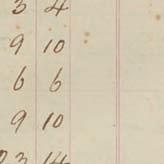 3 4
9 10
6 6
9 10
23 14